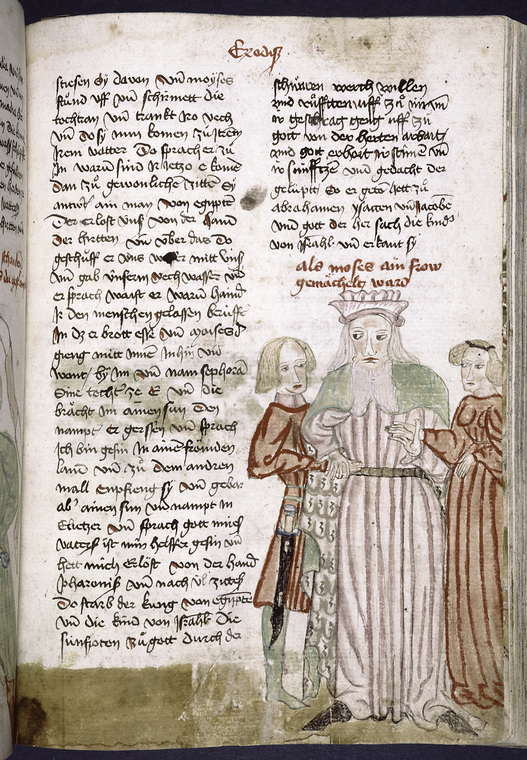 Exodus
stiesen sy davon vnd moyses
stund vff vnd schirmett die
tochtran vnd trankt iro vech
vnd do sy nun komen zu irem
Irem vatter Do sprach er zu
In warum sind Ir ietzo e komen
dan zu gewonliche zitten sy
antwrt ain man von egipte
Der erlost vnß von der hand
der hirtten vnd vber das do
geschufft er vns wasser mitt vnß
vnd gab vnserm vech wasser vnd
er sprach waß er warum hand
Ir den menschen gelassen beruffe
In dz er brott esse vnd moises
gieng mitt inne Inhin vnd
wont by im vnd nam sephora
Sine tochter ze E vnd die
bracht im ainen sun Den
nampt er gerssen vnd sprach
Ich bin gesin in ainem fromden
land vnd zu dem andren
mall Enpfieng sy vnd gebar
ainen sun vnd nampt in
Eliezer vnd sprach gott mines
vaters ist min helffer gesin vnd
hett mich Erlost von der hand
pharonis vnd nach vil zittes
Do starb der kung von egipte
vnd die kind von Israhel Die
sunfzoten zu gott durch der
schwaren werch willen
vnd rufften vff zu im vnd
ir geschrag gieng vff zu
gott von der herten arbait
vnd gott erhort ir stimen vnd
ir sunfftze vnd gedacht der
geluptt So er geton hett zu
abrahamen ysacen vnd jacobe
vnd gott der her sach die kinde
von Israhel vnd erkant sy
als moses ain frow
gemächelt ward